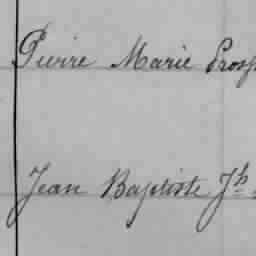 Pierre Marie Prosp
Jean Baptiste Jh